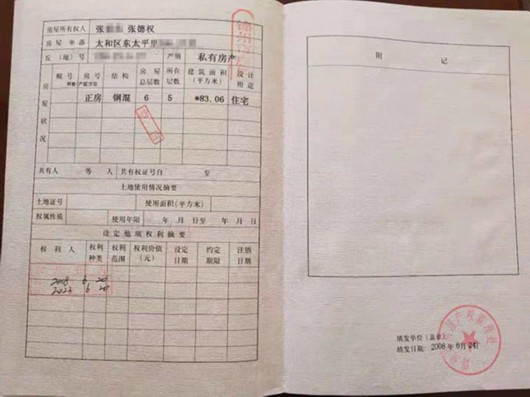 房屋所有权人 张 张德权
房屋坐落 太和区东太平里
丘(地)号 产别 私有房产
幢号 房号 结构 房屋总层数 所在层数 建筑面积(平方米) 设计用途
房屋状况
正房 钢混 6 5 *83.06 住宅
共有人 等 人 共有权证号自 至
土地使用情况摘要
土地证号 使用面积(平方米)
权属性质 使用年限 年 月 日至 年 月 日
设定他项权利摘要
权利人 权利种类 权利范围 权利价值(元) 设定日期 约定期限 注销日期
附记
填发单位(盖章)
填发日期: 2008年6月24日